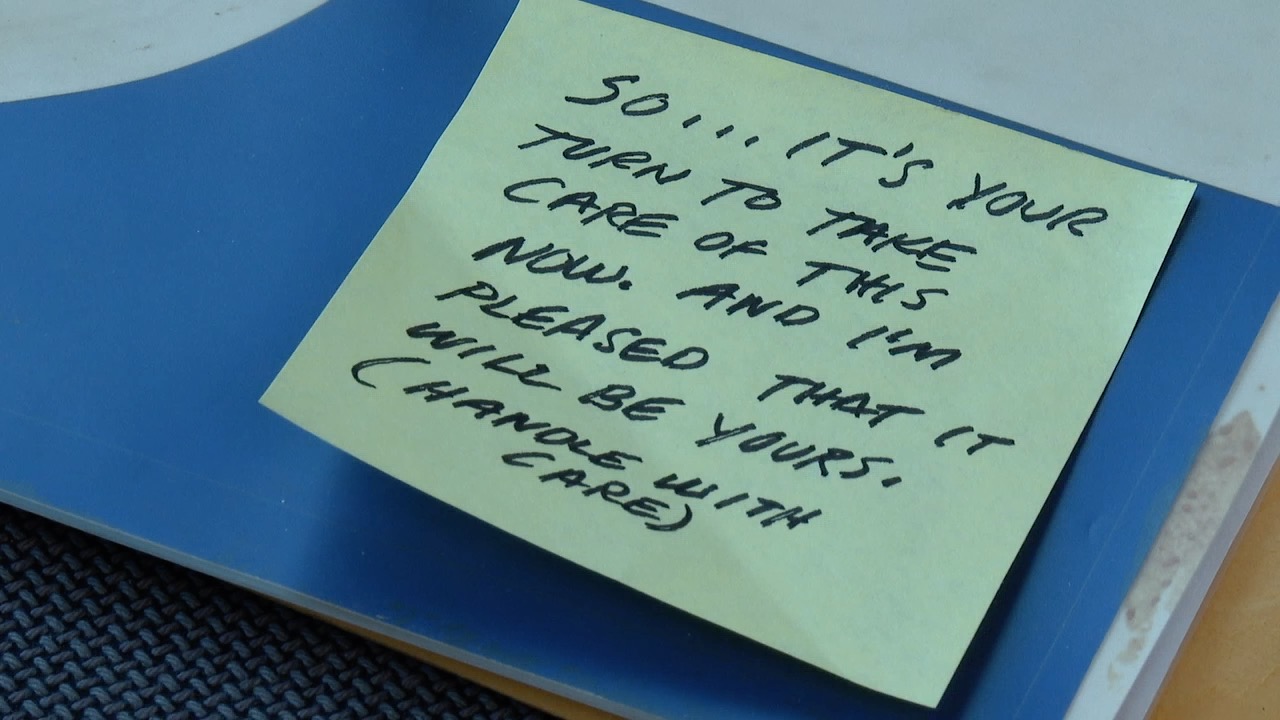 SO... IT'S YOUR
TURN TO TAKE
CARE OF THIS
NOW. AND I'M
PLEASED THAT IT
WILL BE YOURS.
(HANDLE WITH
CARE)